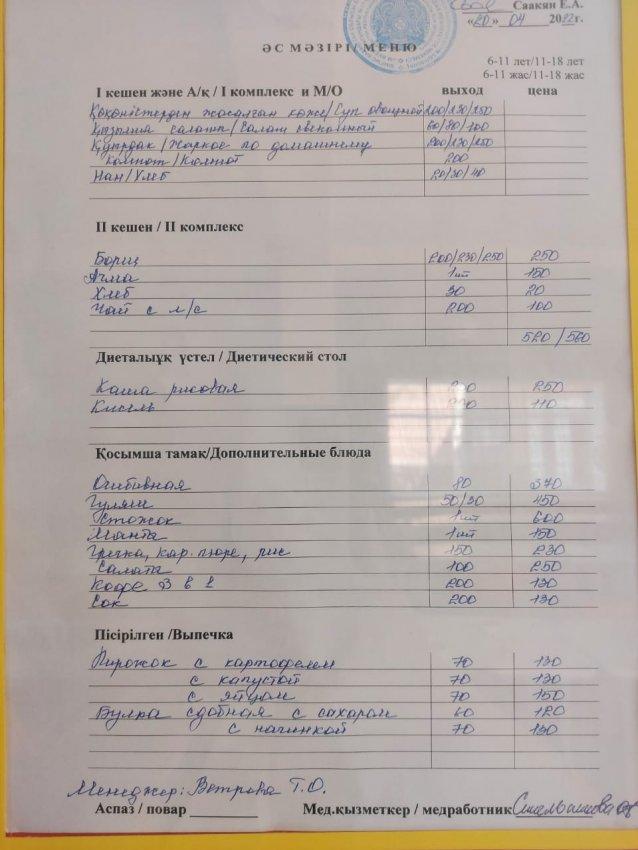 Саакян Е.А.
«20» 04 2022г.
ӘС МӘЗІРІ / МЕНЮ
6-11 лет/11-18 лет
6-11 жас/11-18 жас
I кешен және А/қ / I комплекс и М/О выход цена
Көкөністерден жасалған көже/Суп овощной 200/230/250
Қызылша салаты/Салат свекольный 60/80/100
Қуырдақ/Жаркое по домашнему 200/230/250
Компот/Компот 200
Нан/Хлеб 20/30/40
II кешен / II комплекс
Борщ 200/230/250 250
Ачма 1шт 150
Хлеб 30 20
Чай с м/с 200 100
520/560
Диеталық үстел / Диетический стол
Каша рисовая 250
Кисель 110
Қосымша тамақ/Дополнительные блюда
Отбивная 80 370
Гуляш 50/30 450
1шт 600
Манты 1шт 150
Гречка, кар. пюре, рис 150 230
Салаты 100 250
Кофе 3 в 1 200 130
Сок 200 130
Пісірілген /Выпечка
Пирожок с картофелем 70 130
с капустой 70 130
с яйцом 70 150
Булка сдобная с сахаром 60 120
с начинкой 70 130
Менеджер: Ветрова Т.О.
Аспаз / повар Мед.қызметкер / медработник